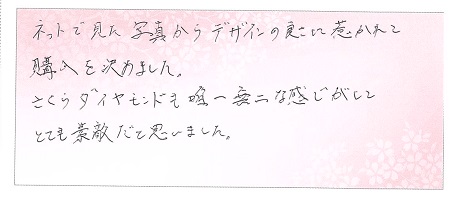 ネットで見た写真からデザインの良さに惹かれて
購入を決めました。
さくらダイヤモンドも唯一無二な感じがして
とても素敵だと思いました。